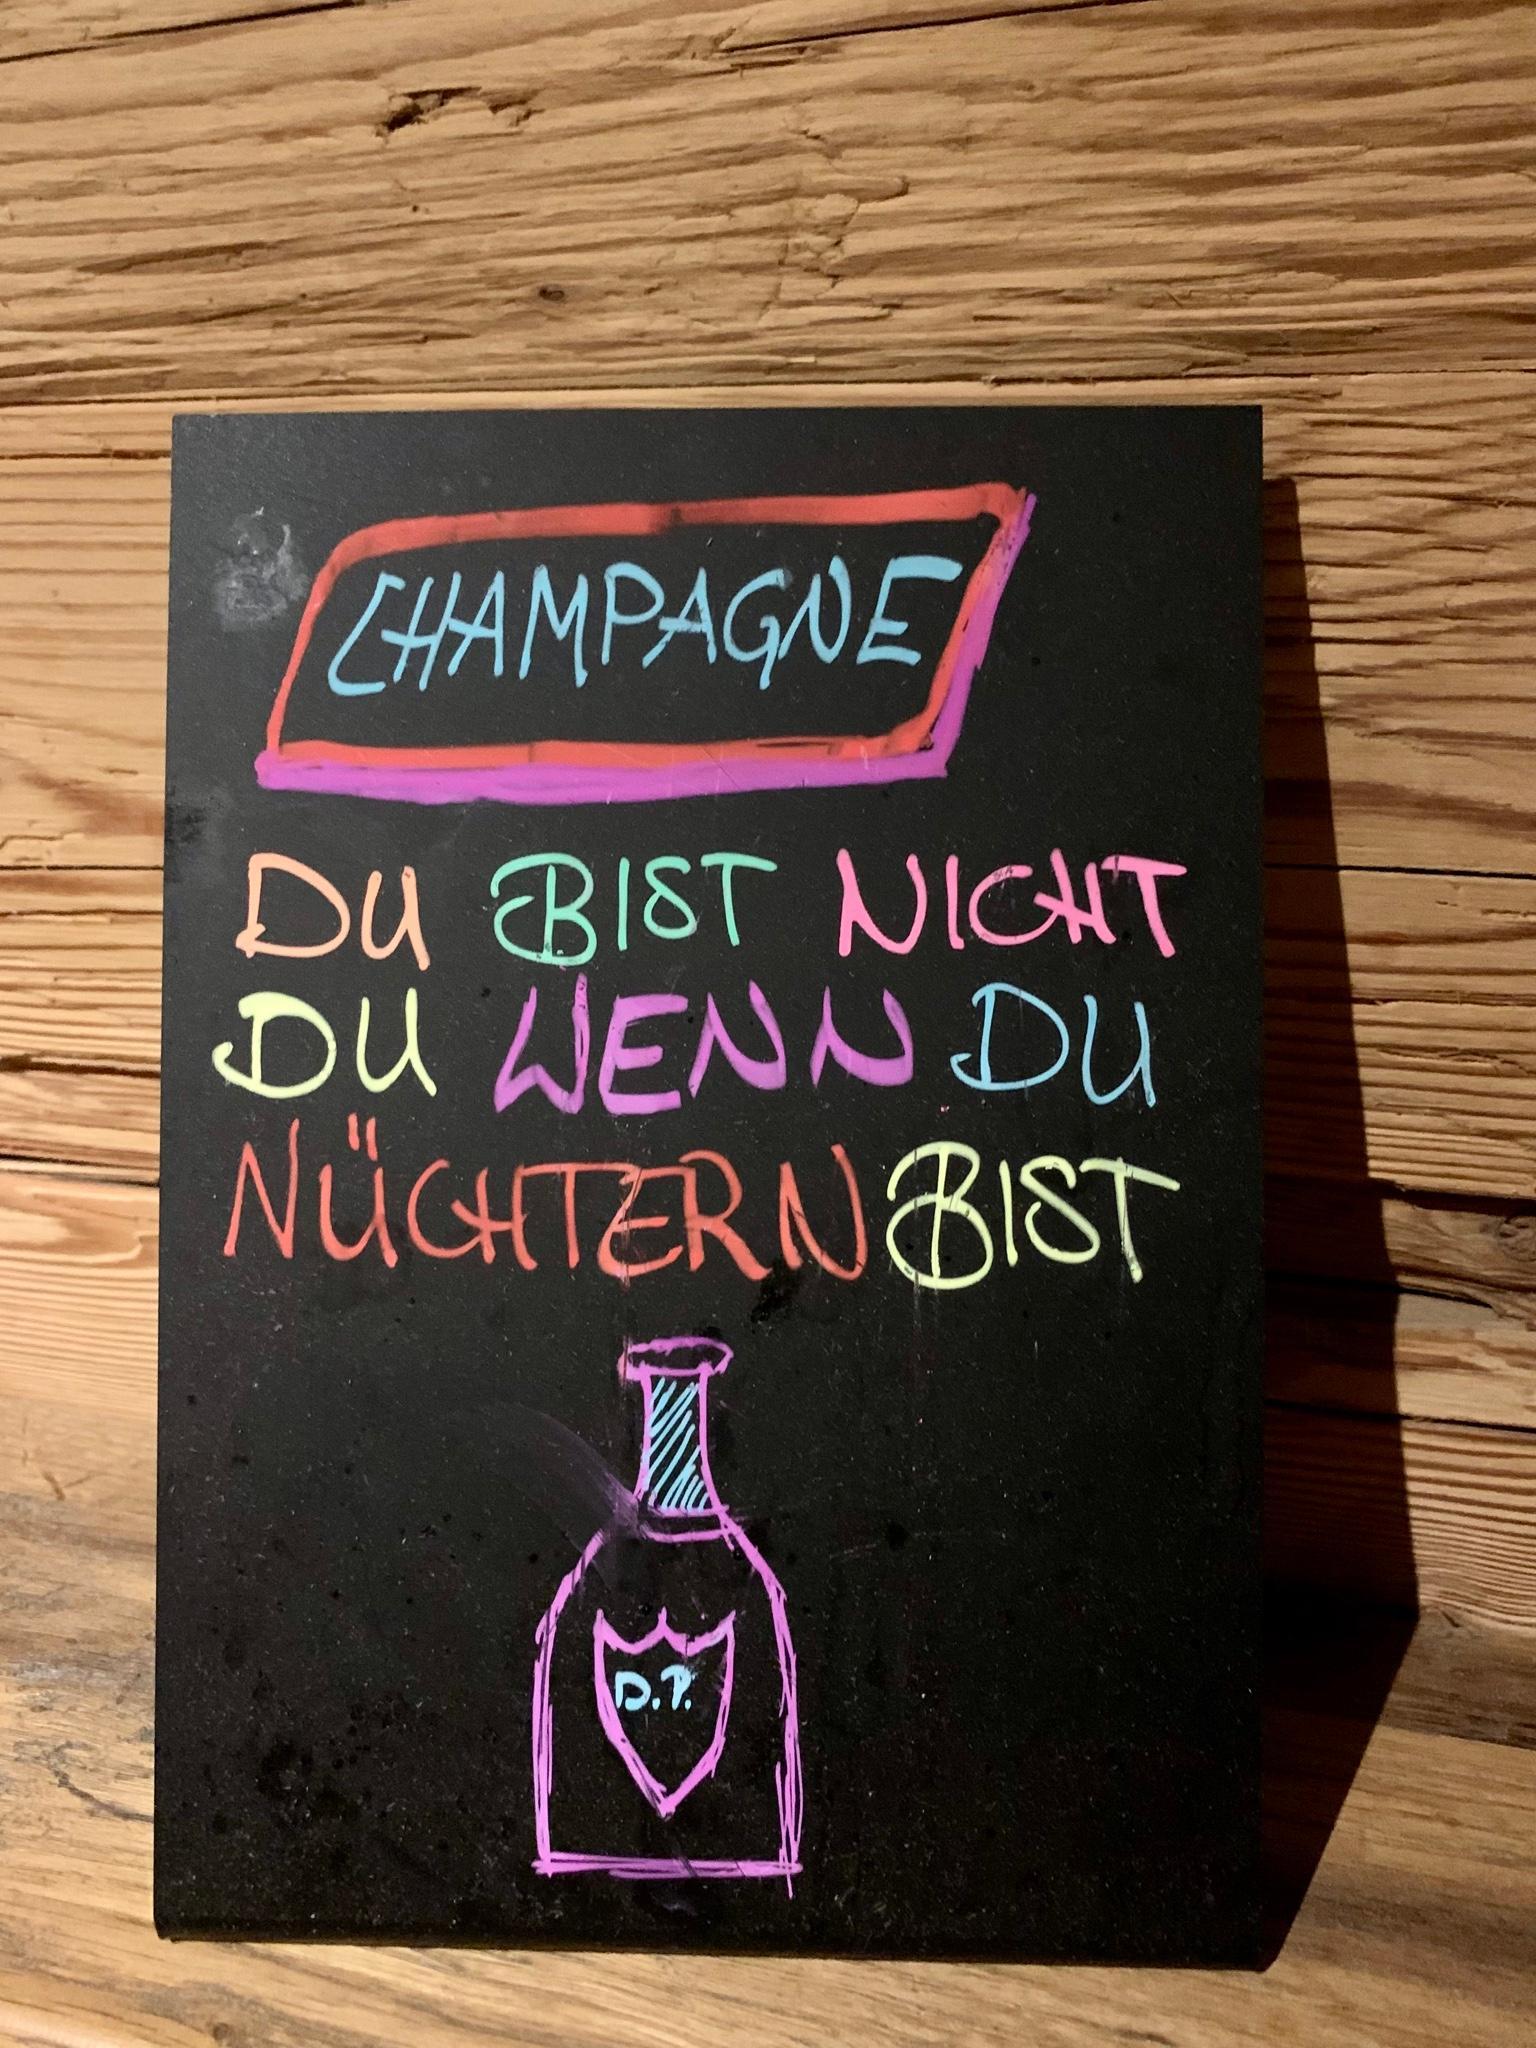 CHAMPAGNE
DU BIST NICHT
DU WENN DU
NÜCHTERN BIST
D.P.